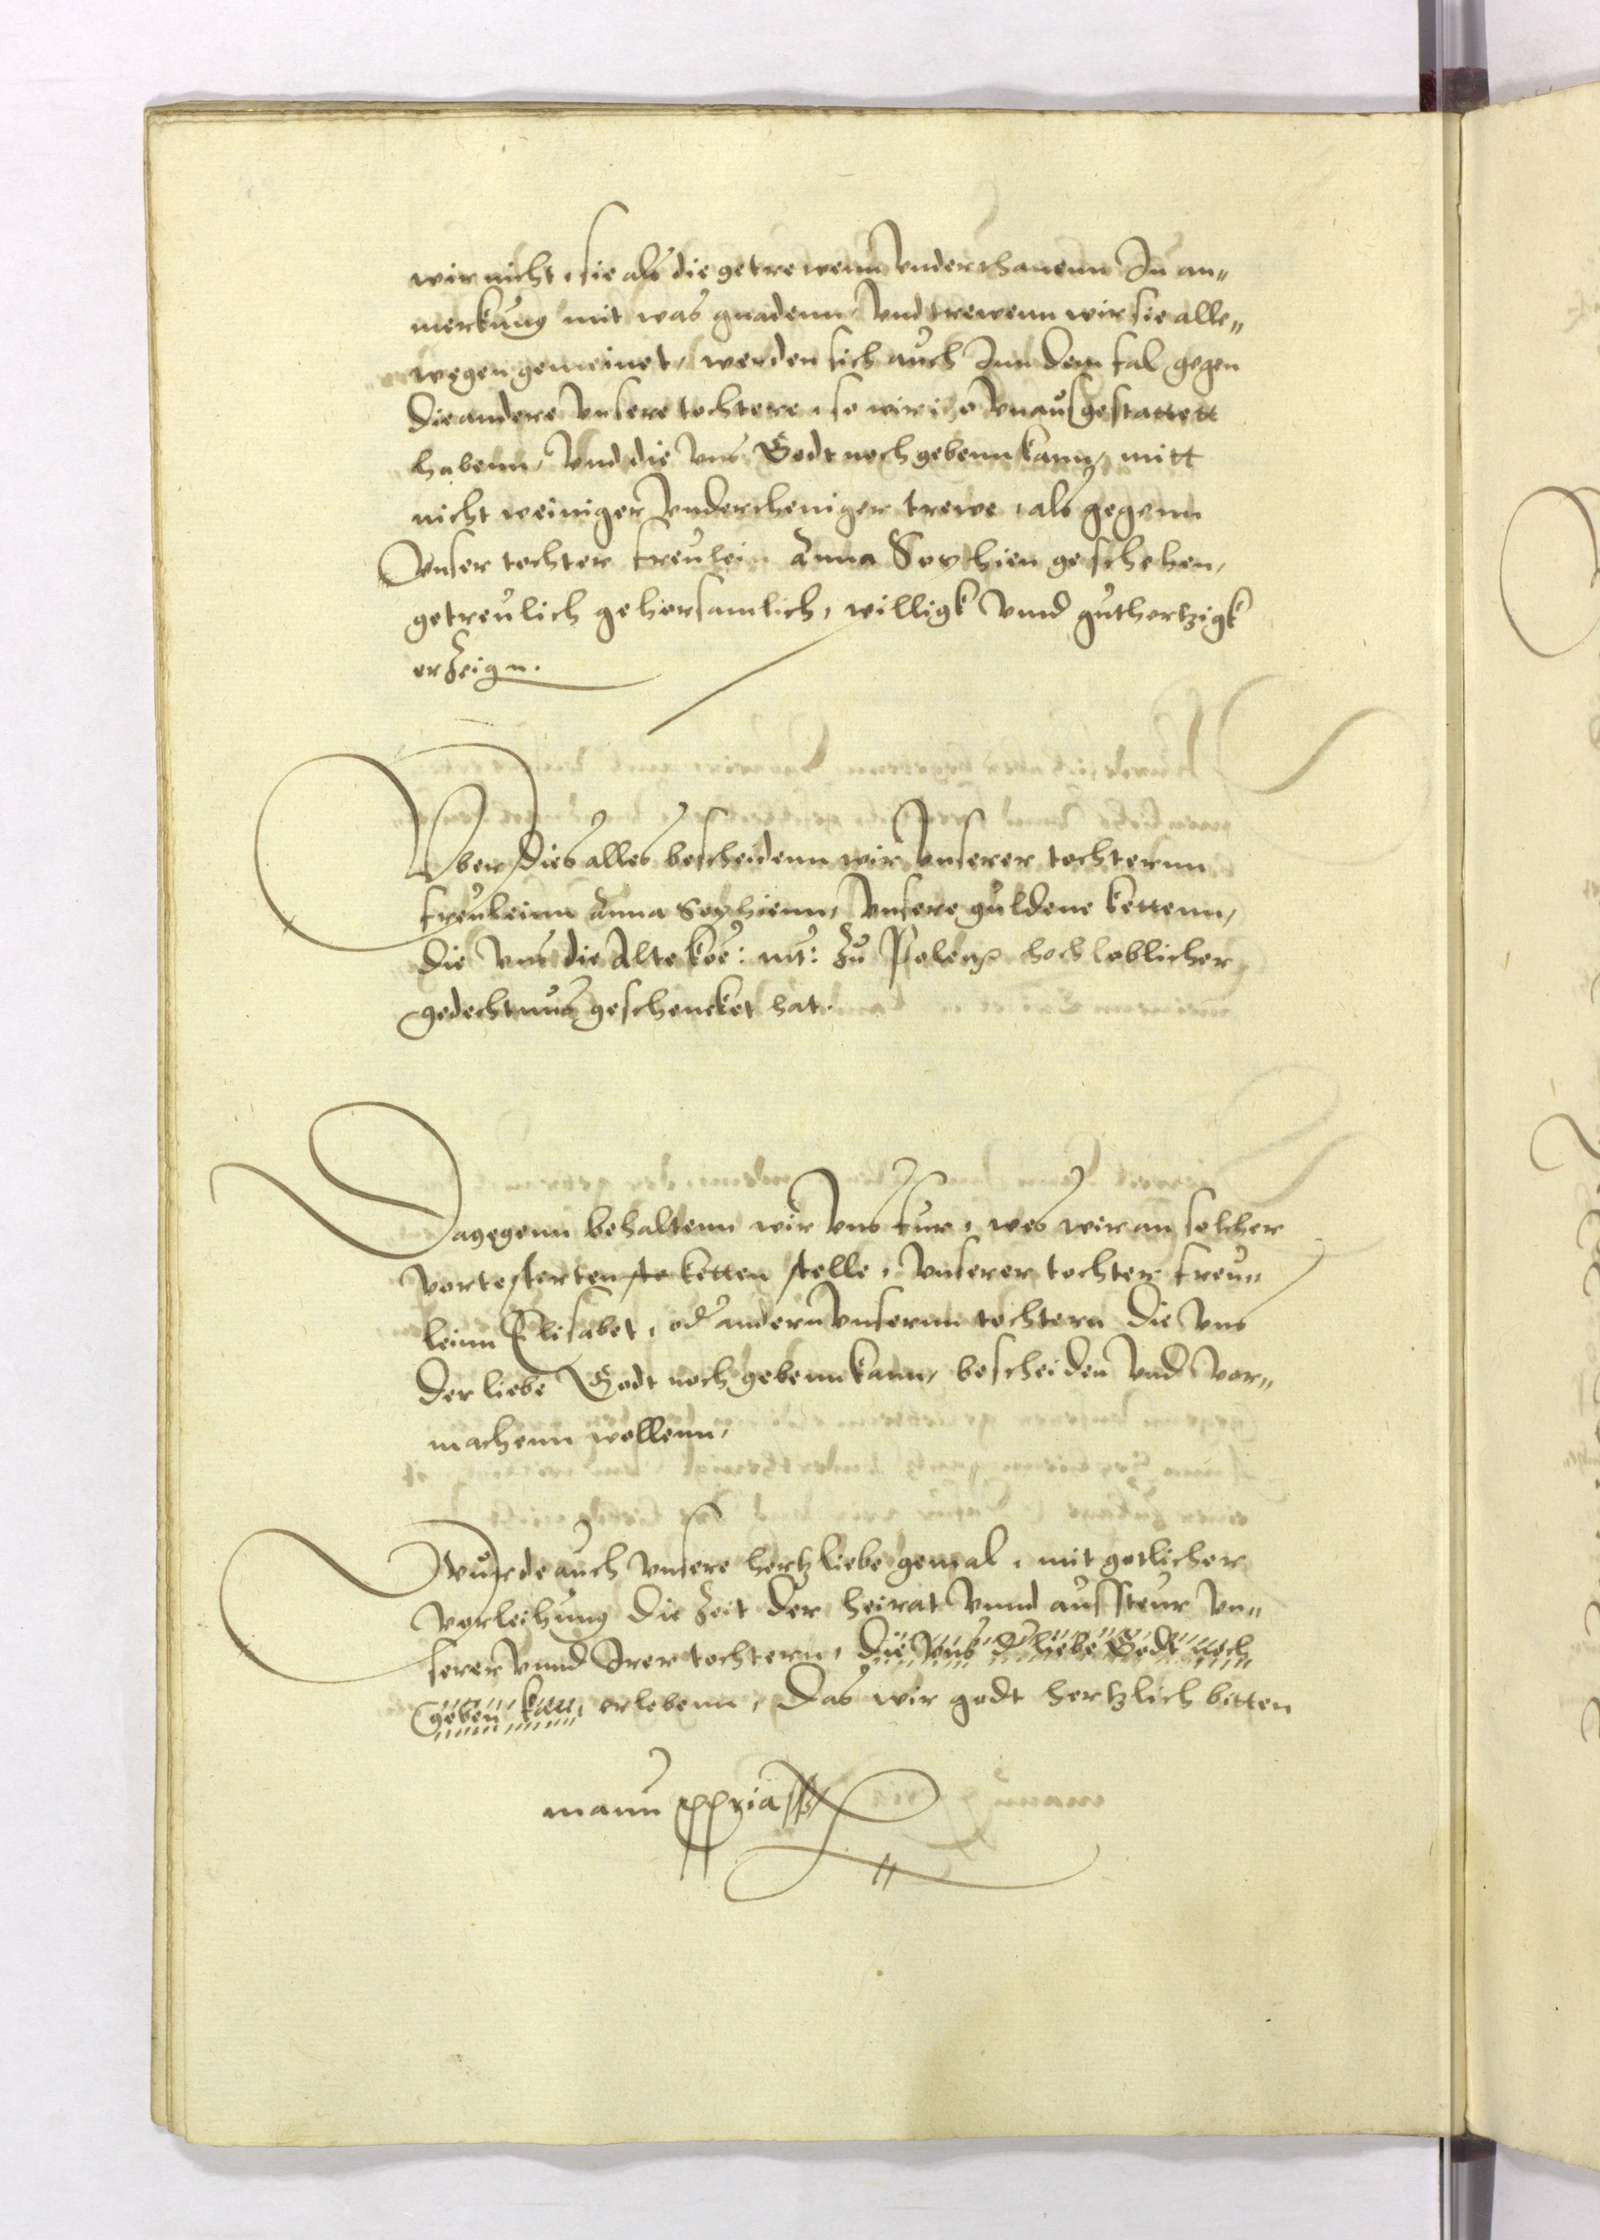 wir nicht, sie als die getrewenn Underthanenn In an„
merkung mit was gnadenn, Und trewenn wir sie alle„
wegen gemeinet, werden sich auch Inn dem fal gegen
die andere Unsere tochtere, so wir itzo Unausgestattett
habenn, Und die Uns Godt noch gebenn kann, mitt
nicht weiniger Undertheniger trewe, als gegenn
Unser tochter freulein Anna Sophien geschehen,
getreulich gehorsamlich, willigk Unnd guthertzigk
erzeign.
Uber dies alles bescheidenn wir Unserer tochternn
freuleinn Anna Sophienn, Unsere guldene kettenn,
die Uns die Alte koe: mt: zu Polenn hochloblicher
gedechtnus geschencket hat.
Dagegenn behaltenn wir Uns fur, wes wir an solcher
vortesterten ste ketten stelle, Unserer tochter freu„
leinn Elisabet, od andern Unsernn tochtern die Uns
der liebe Godt noch gebenn kann, bescheiden Und vor„
machenn wollenn,
Wurde auch Unsere hertzliebe gemal, mit gotlicher
vorleihung die zeit der heirat Unnd aussteur Un„
serer Unnd Irer tochtern, die Uns d liebe Godt noch
geben kan, erlebenn, das wir godt hertzlich bitten
manu ppria sst